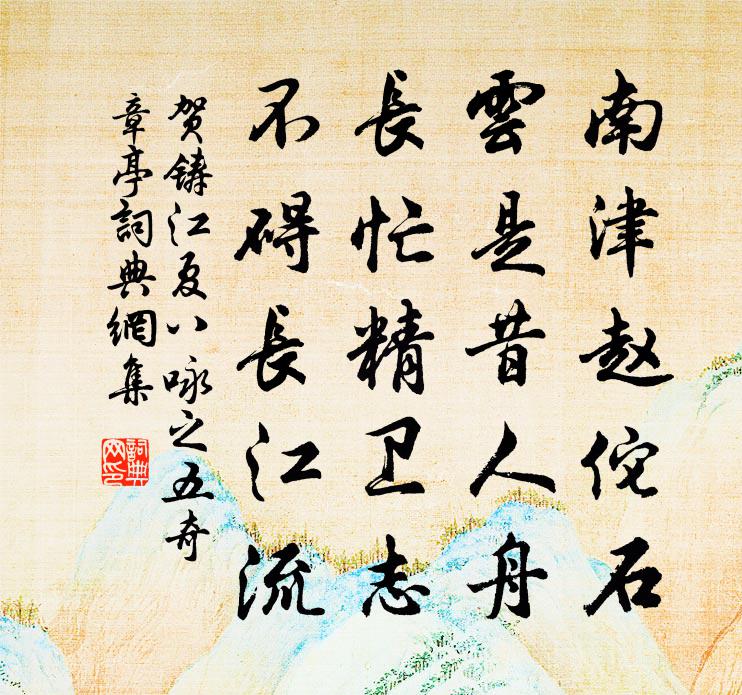 南津赵佗石
雲是昔人舟
長忙精卫志
不碍長江流
贺铸江夏八咏之五奇
章亭詞典網集
詞典网印